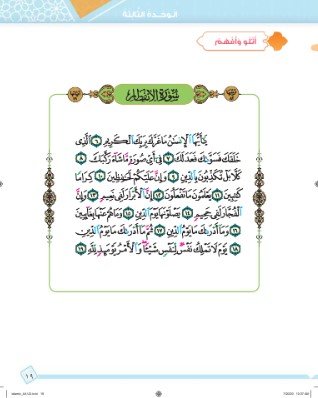 الوحدة الثالثة
أتلو وأفهم
سُورَةُ الِانفِطَارِ
يَٰٓأَيُّهَا ٱلْإِنسَٰنُ مَا غَرَّكَ بِرَبِّكَ ٱلْكَرِيمِ ٦ ٱلَّذِى
خَلَقَكَ فَسَوَّىٰكَ فَعَدَلَكَ ٧ فِىٓ أَىِّ صُورَةٍ مَّا شَآءَ رَكَّبَكَ ٨
كَلَّا بَلْ تُكَذِّبُونَ بِٱلدِّينِ ٩ وَإِنَّ عَلَيْكُمْ لَحَٰفِظِينَ ١٠ كِرَامًا
كَٰتِبِينَ ١١ يَعْلَمُونَ مَا تَفْعَلُونَ ١٢ إِنَّ ٱلْأَبْرَارَ لَفِى نَعِيمٍ ١٣ وَإِنَّ
ٱلْفُجَّارَ لَفِى جَحِيمٍ ١٤ يَصْلَوْنَهَا يَوْمَ ٱلدِّينِ ١٥ وَمَا هُمْ عَنْهَا بِغَآئِبِينَ
١٦ وَمَآ أَدْرَىٰكَ مَا يَوْمُ ٱلدِّينِ ١٧ ثُمَّ مَآ أَدْرَىٰكَ مَا يَوْمُ ٱلدِّينِ
١٨ يَوْمَ لَا تَمْلِكُ نَفْسٌ لِّنَفْسٍ شَيْـًٔا وَٱلْأَمْرُ يَوْمَئِذٍ لِّلَّهِ ١٩
١٩